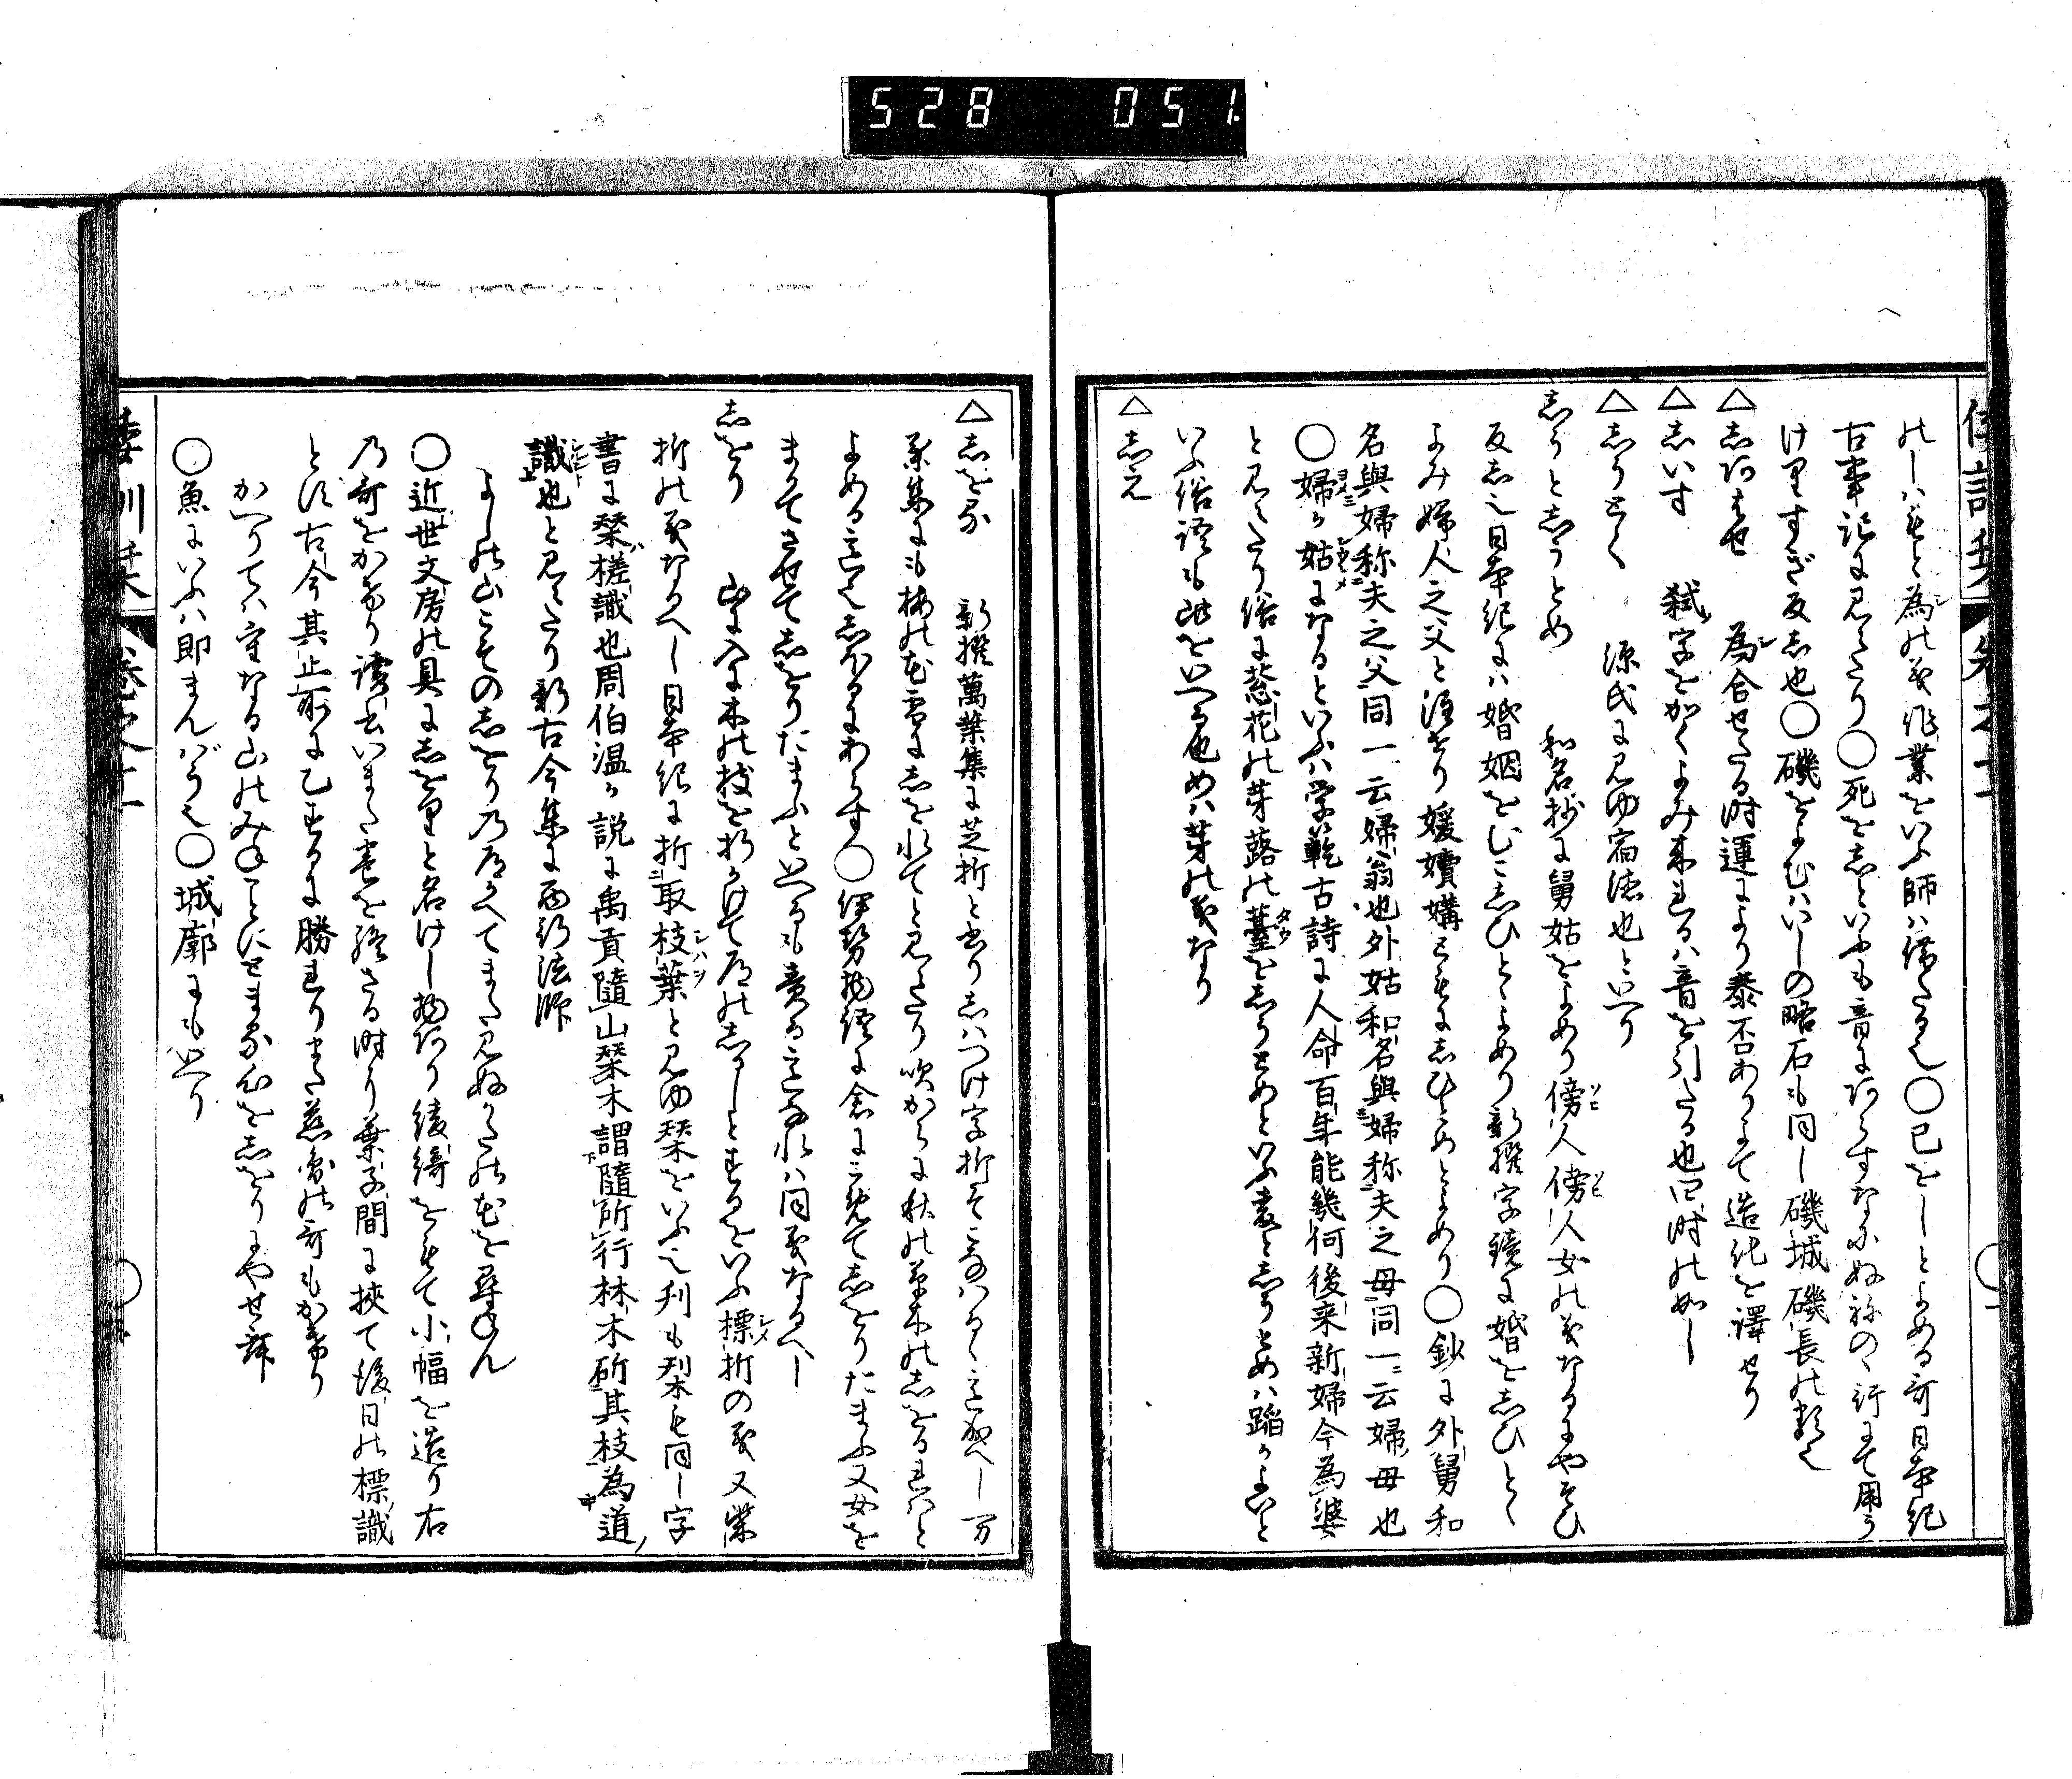 528 051.
のしハもと為の義作業をいふ師ハ借たる也〇己をしとよめる哥日本紀
古事記に見えたり〇死を志といふも音にあらすなにぬねのゝ行にて用う
けりすぎ反志也〇磯をよむハいしの略石も同し磯城磯長の類也
△志あはせ 為合せたる時運により泰否ありよて造化を譯せり
△志いす 弑字をかくよみ来れるハ音を引たる也四時の如し
△志うとく 源氏に見ゆ宿徳也といへり
志うと志うとめ 和名抄に舅姑をよめり傍人傍人女の義なるにやそひ
反志也日本紀にハ婚姻をむこ志ひとよめり新撰字鏡に婚を志ひと
よみ婦人之父と注せり嫒嬻媾ともに志ひとめとよめり〇鈔に外舅和
名與婦称夫之父同一云婦翁也外姑和名與婦称夫之母同一云婦母也
〇婦か姑になるといふハ学範古詩に人命百年能幾何後来新婦今為婆
と見えたり俗に蕗花の芽蕗の薹を志うとめといふ麦と志うとめハ蹈かよいと
いふ俗諺も此をいへる也めハ芽の義なり
△志え
△志をる 新撰萬葉集に芝折と書り志ハつけ字折そこなハるゝ意成へし万
葉集にも梅の花雪に志をれてと見えたり吹からに秋の草木の志をるれハと
よめる意也志ほるにあらす〇伊勢物語に倉にこめて志をりたまふ又女を
まかてさせて志をりたまふといへるも責る意なれハ同義なるへし
志をり 山に入に木の枝を折かけて道の志るしとするをいふ標折の義又柴
折の義なるへし日本紀に折取枝葉と見ゆ栞をいふ也刋も栞も同し字
書に栞槎識也周伯温か説に禹貢隨山栞木謂隨所行林木斫其枝為道
識也と見えたり新古今集に西行法師
よしの山こその志をりの道かへてまた見ぬかたの花を尋ねん
〇近世文房の具に志をりと名けし物あり綾綺をもて小幅を造り右
の哥をかけり讀書いまた巻を終さる時り葉子間に挾て後日の標識
とす古今其止所に乙するに勝れりまた慈鎮の哥もかけり
かへりてハ室なる山のみねことにとまる心を志をりにやせむ
〇魚にいふハ即まんばう也〇城廓にもいへり
倭訓栞 巻之十一